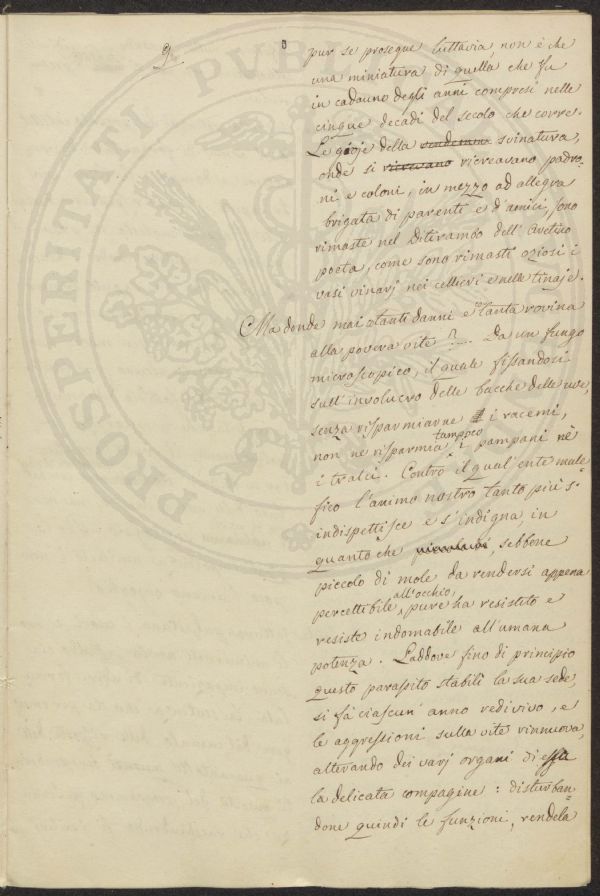 9.
pur se prosegue tuttavia, non è che
una miniatura di quella che fu
in cadauno degli anni compresi nelle
cinque decadi del secolo che corre.
Le gioje della svinatura,
onde si ricreavano padro-
ni e coloni, in mezzo ad allegra
brigata di parenti e d'amici, sono
rimaste nel Ditirambo dell'Aretino
poeta, come sono rimasti oziosi i
vasi vinarj nei cellieri e nelle tinaje.
Ma donde mai tanti danni e tanta rovina
alla povera vite? Da un fungo
microscopico, il quale fissandosi
sull'involucro delle bacche delle uve,
senza risparmiarne i racemi,
non ne risparmia tampoco i pampani nè
i tralci. Contro il qual'ente male-
fico l'animo nostro tanto più s'
indispettisce e s'indigna, in
quanto che, sebbene
piccolo di mole da rendersi appena
percettibile all'occhio, pure ha resistito e
resiste indomabile all'umana
potenza. Laddove fino di principio
questo parassito stabilì la sua sede,
si fà ciascun'anno redivivo, e
le aggressioni sulla vite rinnuova,
alterando dei varj organi di essa
la delicata compagine: disturban-
done quindi le funzioni, rendela
PROSPERITATI PVBLICAE